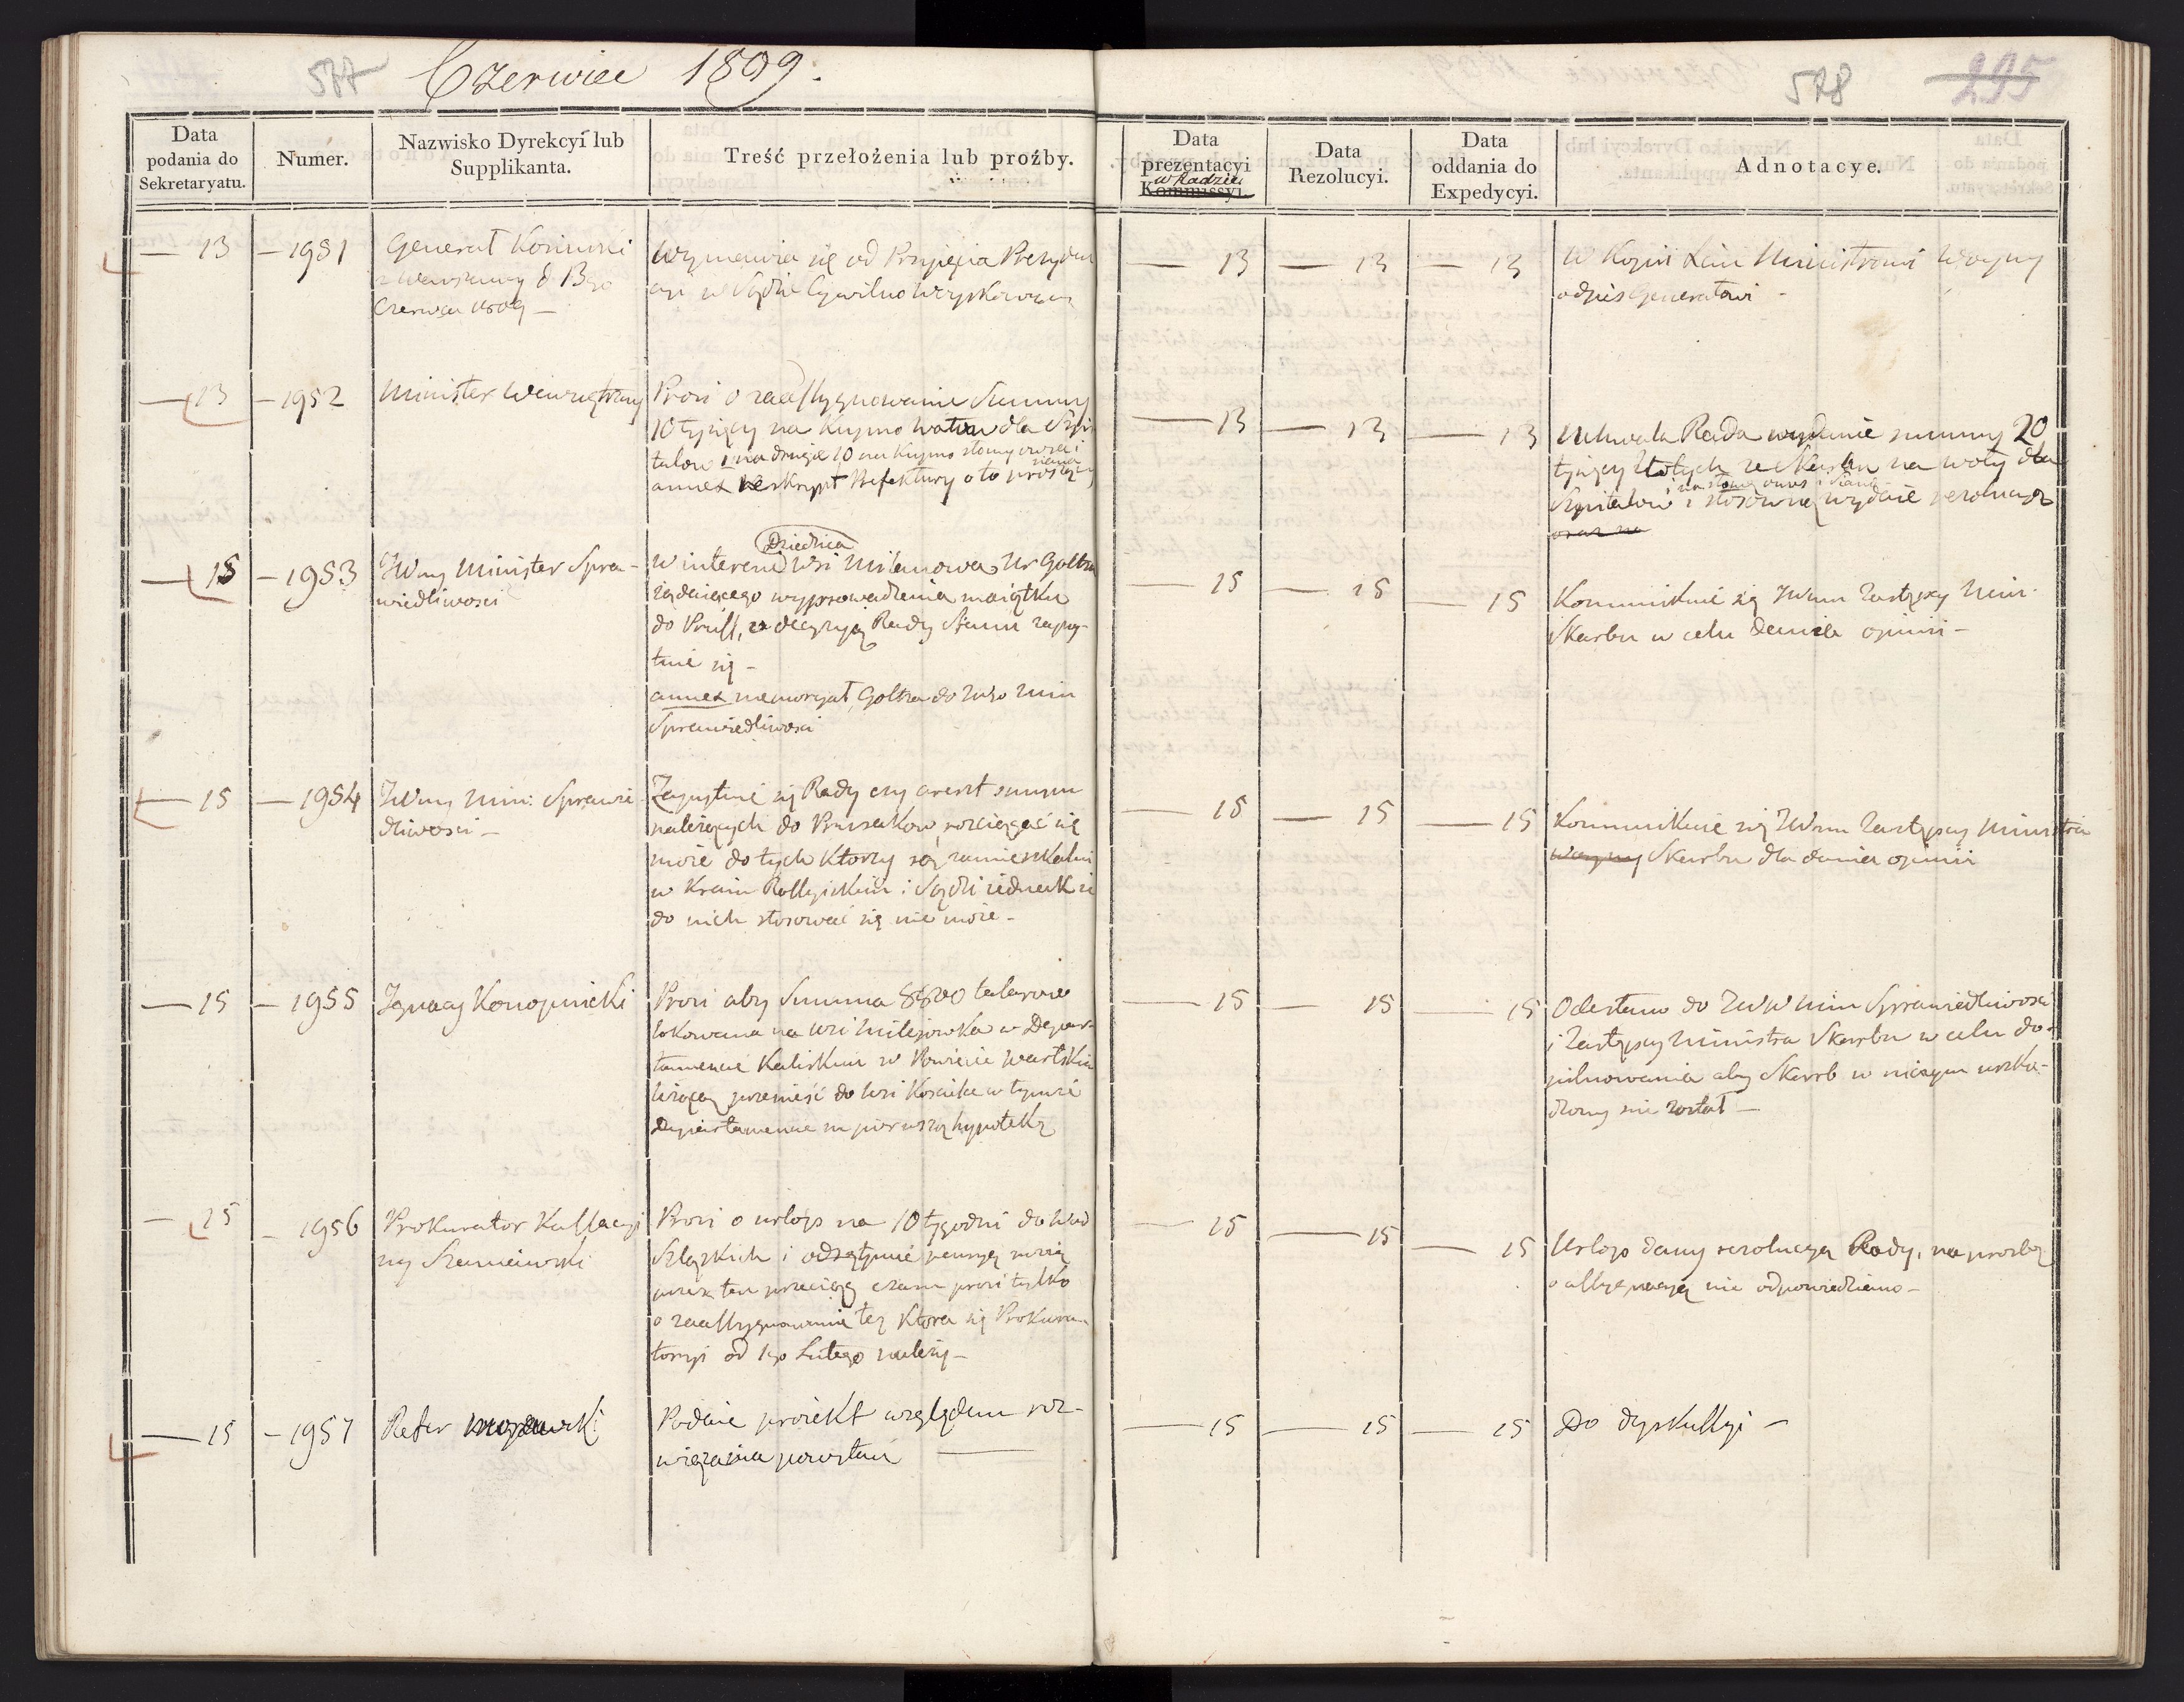 577 Czerwiec 1809.
578 295
Data podania do Sekretaryatu.
Numer.
Nazwisko Dyrekcyi lub Supplikanta.
Treść przełożenia lub proźby.
Data prezentacyi Kommissyi. w Radzie
Data Rezolucyi.
Data oddania do Expedycyi.
Adnotacye.
— 13 — 1951
Generał Kosinski
z Warszawy d. 13go
Czerwca 1809 —
Wymawia się od Przyjęcia Prezyden
cyi w Sądzie Cywilno Woyskowym
— 13 — 13 — 13
W Kopii Ministrowi Woyny
odpis Generałowi —
— 13 — 1952
Minister Wewnętrzny
Prosi o zaassygnowanie Summy
10 tysięcy na Kupno wołow dla Szpi
talow i na drugie 10 na Kupno słomy owsa i
siana
annex Reskrypt Prefektury o to proszący
— 13 — 13 — 13
Uchwala Rada wydanie summy 20
tysięcy złotych ze Skarbu na woły dla
i na słomę owies i siano
Szpitalow i stosowną wydaie rezolucyą
oraz na
— 15 — 1953
JWny Minister Spra-
wiedliwosci
Dziedzica
W interesie Wsi Milanowa Ur Goltza
żądaiącego wyprowadzenia maiątku
do Pruss, o decyzyą Rady Stanu zapy-
tuie się —
annex memoryał Goltza do JWgo Min
Sprawiedliwosci
— 15 — 15 — 15
Kommunikuie się JWmu Zastępcy Min.
Skarbu w celu dania opinii —
— 15 — 1954
JWny Min: Sprawie
dliwosci —
Zapytuie się Rady czy areszt summ
należących do Prusakow, rozciągać się
może do tych ktorzy są zamieszkali
w Kraiu Rossyiskim i Sądzi iednak iż
do nich stosować się nie może —
— 15 — 15 — 15
Kommunikuie się JWmu Zastępcy Ministra
Woyny Skarbu dla dania opinii
— 15 — 1955
Ignacy Konopnicki
Prosi aby Summa talarow
lokowana na wsi Milejowka w Depar-
tamencie Kaliskim w Powiecie Wartskim
leżącey przenieść do wsi w tymże
Departamencie na pierwszą hypotekę
— 15 — 15 — 15
Odesłano do JWW Min Sprawiedliwosci
i Zastępcy Ministra Skarbu w celu do-
pilnowania aby Skarb w niczym uszko-
dzony nie został —
— 15 — 1956
Prokurator Kassacyi
ny Szaniawski
Prosi o urlop na 10 tygodni do Wod
Szląskich i odstępuie pensyą swoią
przez ten przeciąg czasu prosi tylko
o zaassygnowanie tey ktora się Prokura-
toryi od 1go Lutego należy —
— 15 — 15 — 15
Urlop dany rezolucyą Rady, na prosbę
o assygnacyą nie odpowiedziano —
— 15 — 1957
Refer Morawski
Podaie proiekt względem roz-
wiązania powstań —
— 15 — 15 — 15
Do dyskussyi —